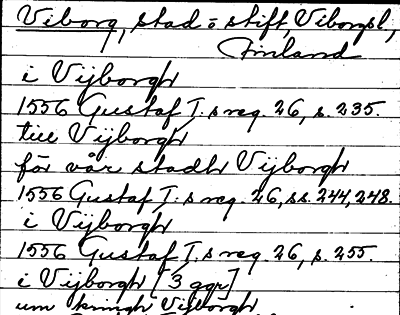 Viborg, stad o stift, Viborgsl,
Finland
i Vijborgh
1556 Gustaf I.s reg. 26, s. 235.
till Vijborgh
för vår stadh Vijborgh
1556 Gustaf I.s reg. 26, ss. 244, 248.
i Vijborgh
1556 Gustaf I.s reg. 26, s. 255.
i Vijborgh [3 ggr]
um kringh Vijborgh